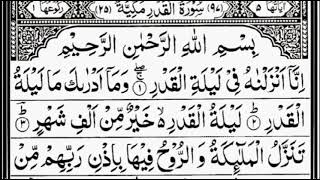 اٰیاتہا ٥ (٩٧) سُوْرَةُ الْقَدْرِ مَكِّيَّةٌ (٢٥) رکوعہا ١
بِسْمِ اللّٰهِ الرَّحْمٰنِ الرَّحِيْمِ
اِنَّاۤ اَنْزَلْنٰهُ فِيْ لَيْلَةِ الْقَدْرِ ۝١ وَمَاۤ اَدْرٰىكَ مَا لَيْلَةُ
الْقَدْرِ ۝٢ لَيْلَةُ الْقَدْرِ ۙ خَيْرٌ مِّنْ اَلْفِ شَهْرٍ ۝٣
تَنَزَّلُ الْمَلٰٓئِكَةُ وَ الرُّوْحُ فِيْهَا بِاِذْنِ رَبِّهِمْ مِّنْ